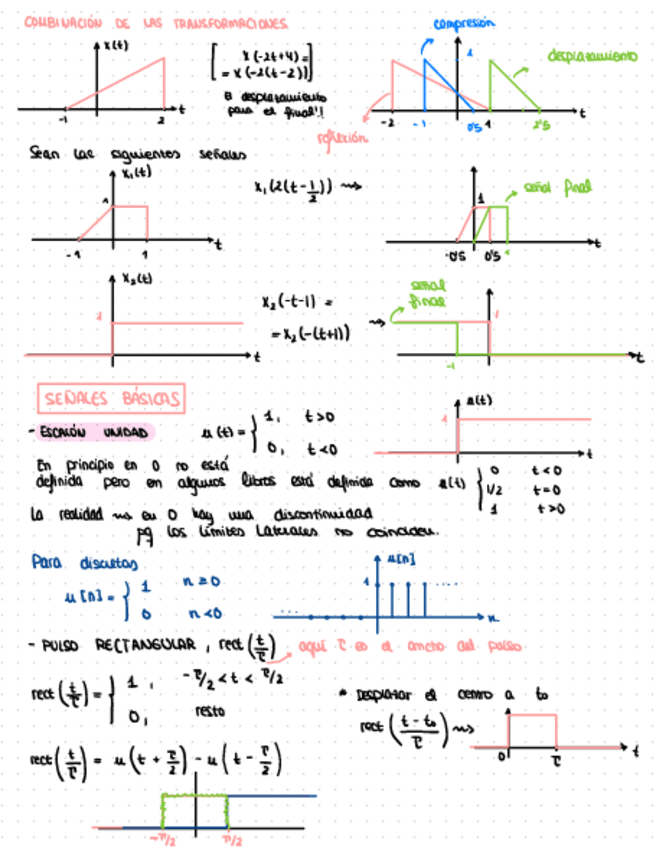 COMBINACIÓN DE LAS TRANSFORMACIONES
x(t)
-1
2
t
x(-2t+4) =
= x(-2(t-2))
El desplazamiento
para el final!!
compresión
desplazamiento
1
-2
-1
0'5
1
2'5
t
reflexión
Sean las siguientes señales
x₁(t)
1
-1
1
t
x₁(2(t-1/2)) ⇝
señal final
1
-0'5
0'5
1
t
x₂(t)
1
t
x₂(-t-1) =
= x₂(-(t+1)) ⇝
señal
final
1
-1
t
SEÑALES BÁSICAS
- ESCALÓN UNIDAD
u(t) = { 1, t>0
0, t<0
u(t)
1
t
En principio en 0 no está
definida pero en algunos libros está definida como u(t) { 0 t<0
1/2 t=0
1 t>0
La realidad ⇝ en 0 hay una discontinuidad
pq los límites laterales no coinciden.
Para discretas
u[n] = { 1 n≥0
0 n<0
u[n]
1
...
...
n
- PULSO RECTANGULAR, rect(t/τ) aquí τ es el ancho del pulso
rect(t/τ) = { 1, -τ/2 < t < τ/2
0, resto
* Desplazar el centro a t₀
rect((t-t₀)/τ) ⇝
0
τ
t
rect(t/τ) = u(t + τ/2) - u(t - τ/2)
-τ/2
τ/2